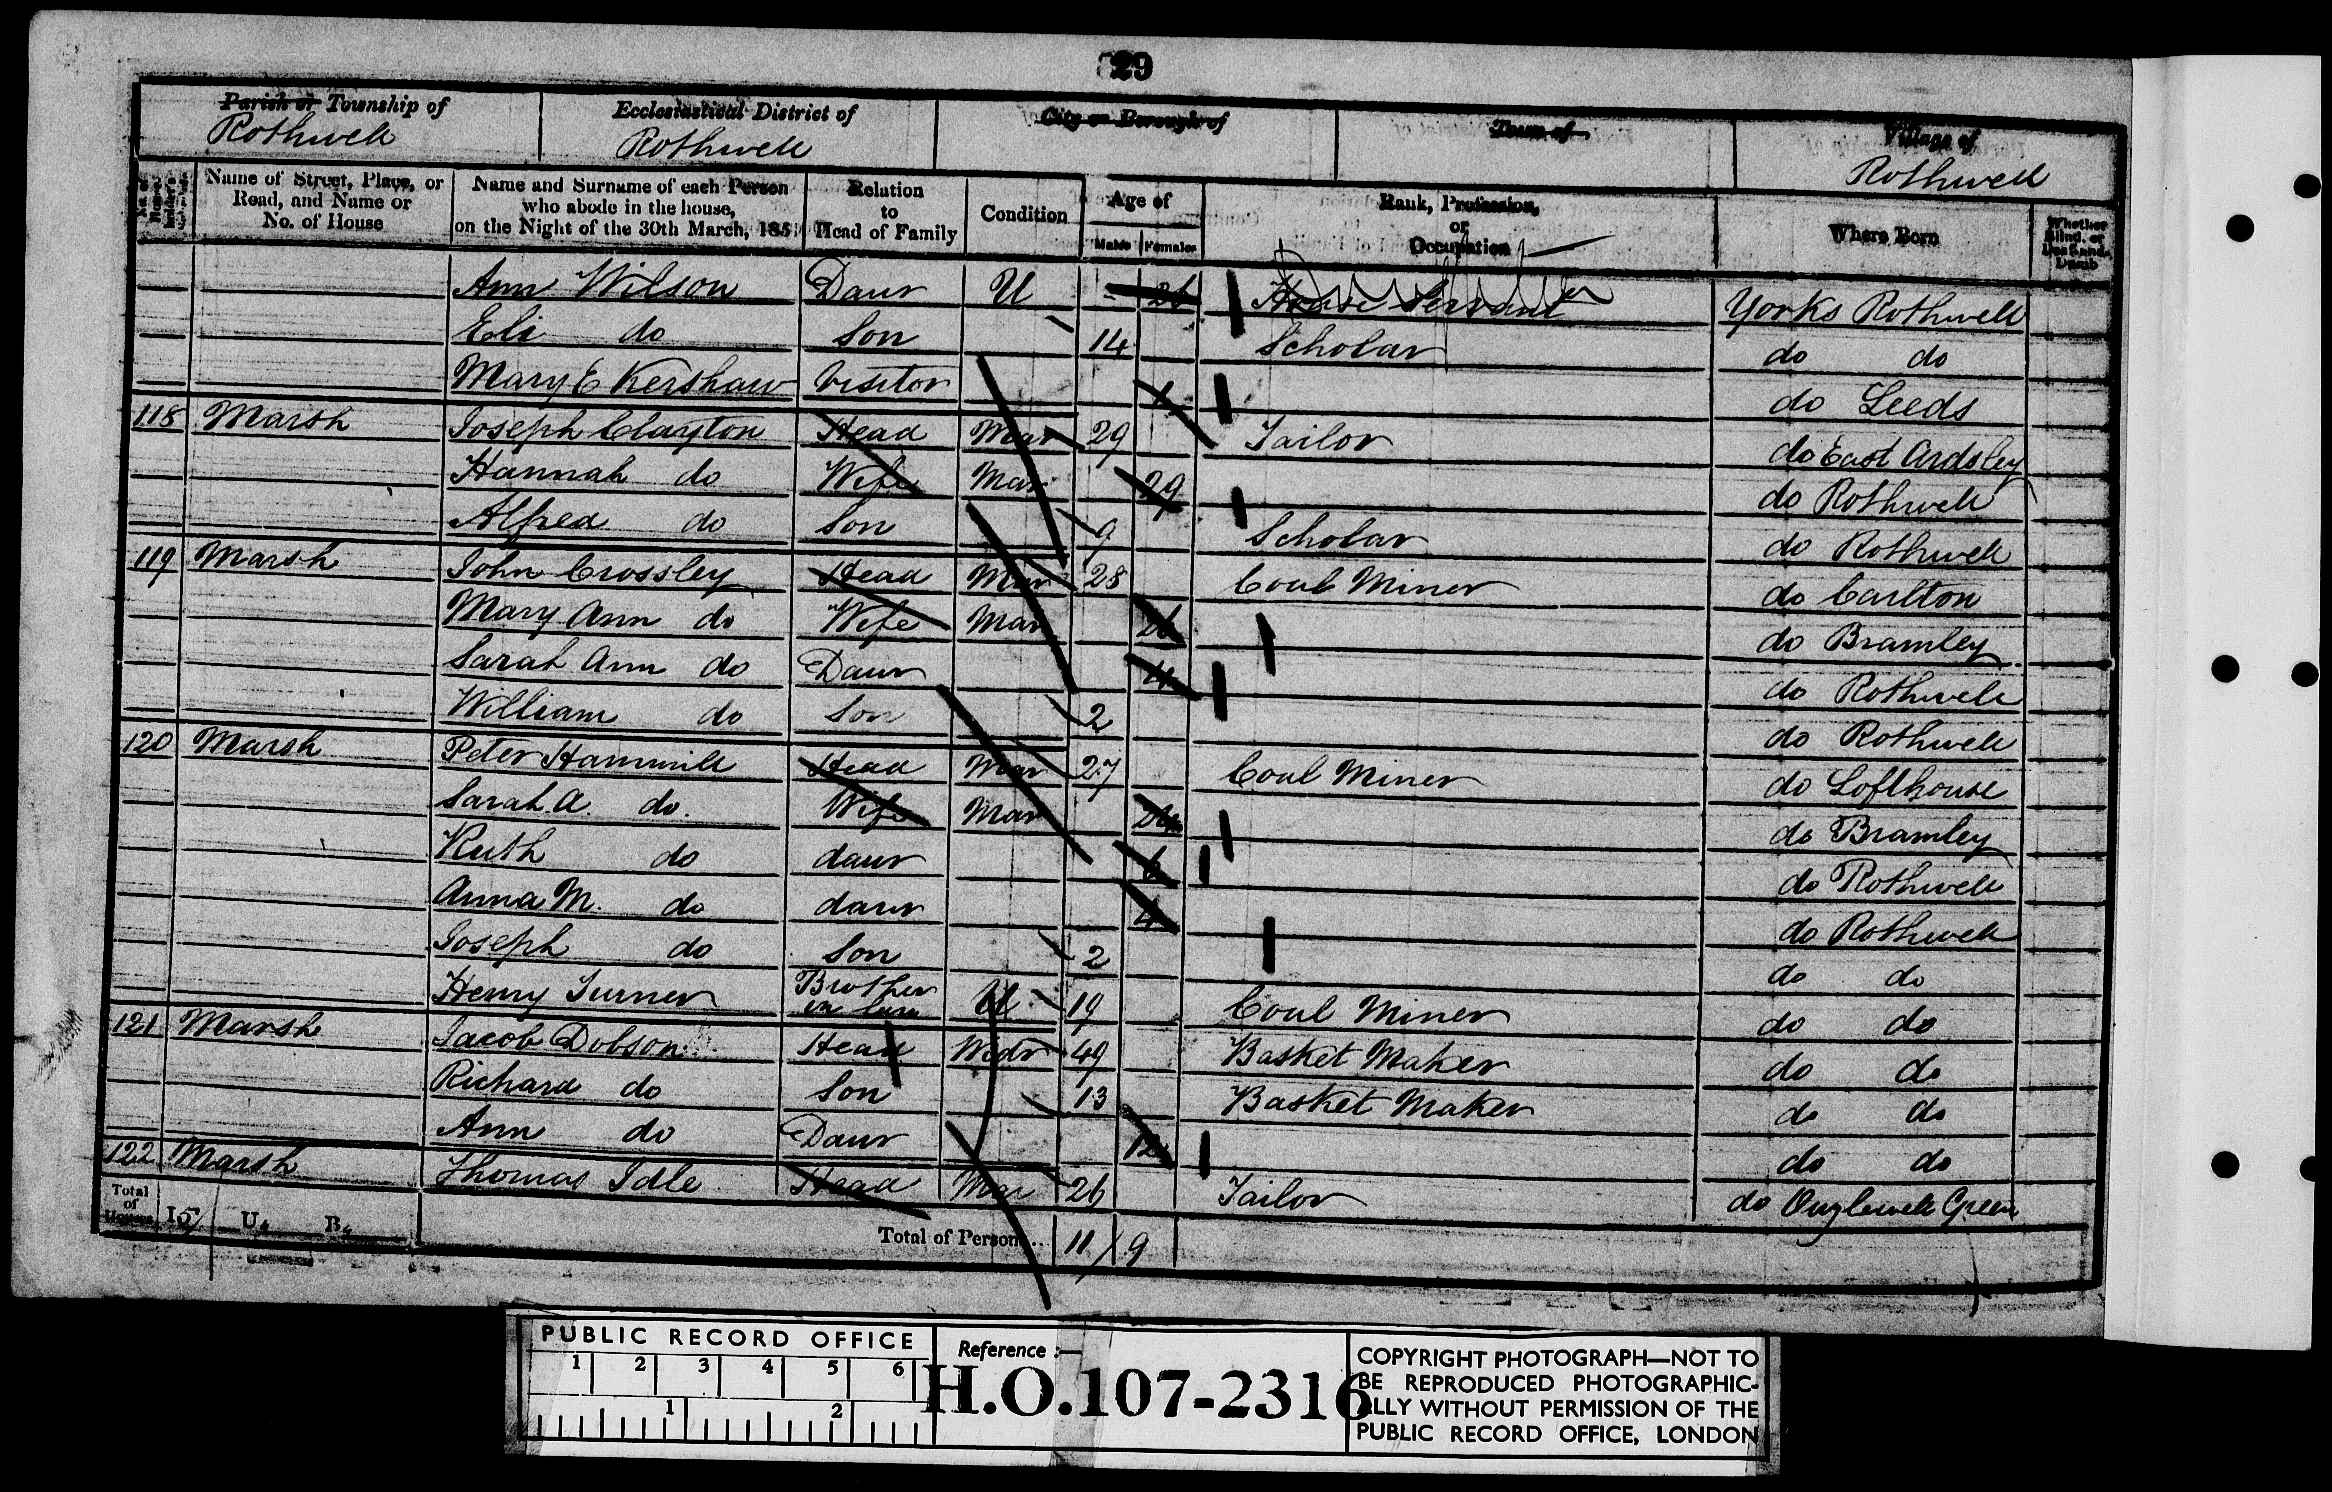 29
Parish or Township of
Rothwell
Ecclesiastical District of
Rothwell
City or Borough of
Town of
Village of
Rothwell
Name of Street, Place, or Road, and Name or No. of House
Name and Surname of each Person who abode in the house, on the Night of the 30th March, 1851
Relation to Head of Family
Condition
Age of
Males Females
Rank, Profession, or Occupation
Where Born
Whether Blind, or Deaf-and-Dumb
Ann Wilson Daur U House Servant Yorks Rothwell
Eli do Son 14 Scholar do do
Mary E Kershaw Visitor do Leeds
118 Marsh Joseph Clayton Head Mar 29 Tailor do East Ardsley
Hannah do Wife Mar 29 do Rothwell
Alfred do Son 9 Scholar do Rothwell
119 Marsh John Crossley Head Mar 28 Coal Miner do Carlton
Mary Ann do Wife Mar 26 do Bramley
Sarah Ann do Daur 4 do Rothwell
William do Son 2 do Rothwell
120 Marsh Peter Hammill Head Mar 27 Coal Miner do Lofthouse
Sarah A. do. Wife Mar do Bramley
Ruth do daur 6 do Rothwell
Anna M. do daur 4 do Rothwell
Joseph do Son 2 do do
Henry Turner Brother in law U 19 Coal Miner do do
121 Marsh Jacob Dobson Head Widr 49 Basket Maker do do
Richard do Son 13 Basket Maker do do
Ann do Daur 12 do do
122 Marsh Thomas Idle Head Mar 26 Tailor do Ouzlewell Green
Total of Houses I 5 U. B.
Total of Persons... 11 9
PUBLIC RECORD OFFICE
1 2 3 4 5 6
1 2
Reference :—
H.O.107-2316
COPYRIGHT PHOTOGRAPH—NOT TO
BE REPRODUCED PHOTOGRAPHIC-
ALLY WITHOUT PERMISSION OF THE
PUBLIC RECORD OFFICE, LONDON